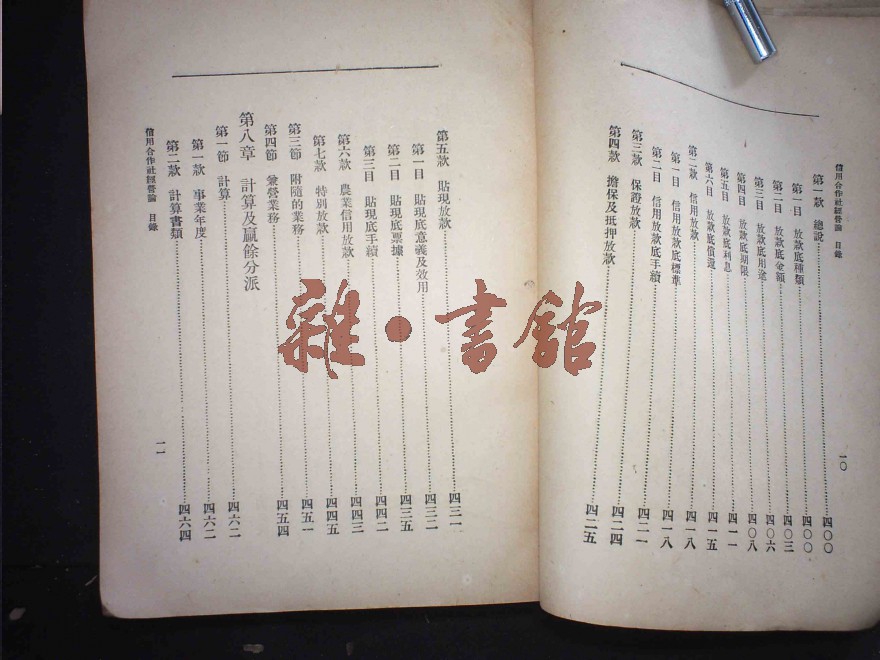 信用合作社經營論 目錄
一〇
第一款 總說 四〇〇
第一目 放款底種類 四〇〇
第二目 放款底金額 四〇三
第三目 放款底用途 四〇六
第四目 放款底期限 四〇八
第五目 放款底利息 四一一
第六目 放款底償還 四一五
第二款 信用放款 四一八
第一目 信用放款底標準 四一八
第二目 信用放款底手續 四二一
第三款 保證放款 四二四
第四款 擔保及抵押放款 四二五
第五款 貼現放款 四三一
第一目 貼現底意義及效用 四三二
第二目 貼現底票據 四三五
第三目 貼現底手續 四四二
第六款 農業信用放款 四四三
第七款 特別放款 四四五
第三節 附隨的業務 四五一
第四節 兼營業務 四五四
第八章 計算及贏餘分派
第一節 計算 四六二
第一款 事業年度 四六二
第二款 計算書類 四六四
信用合作社經營論 目錄
一一
雜·書館